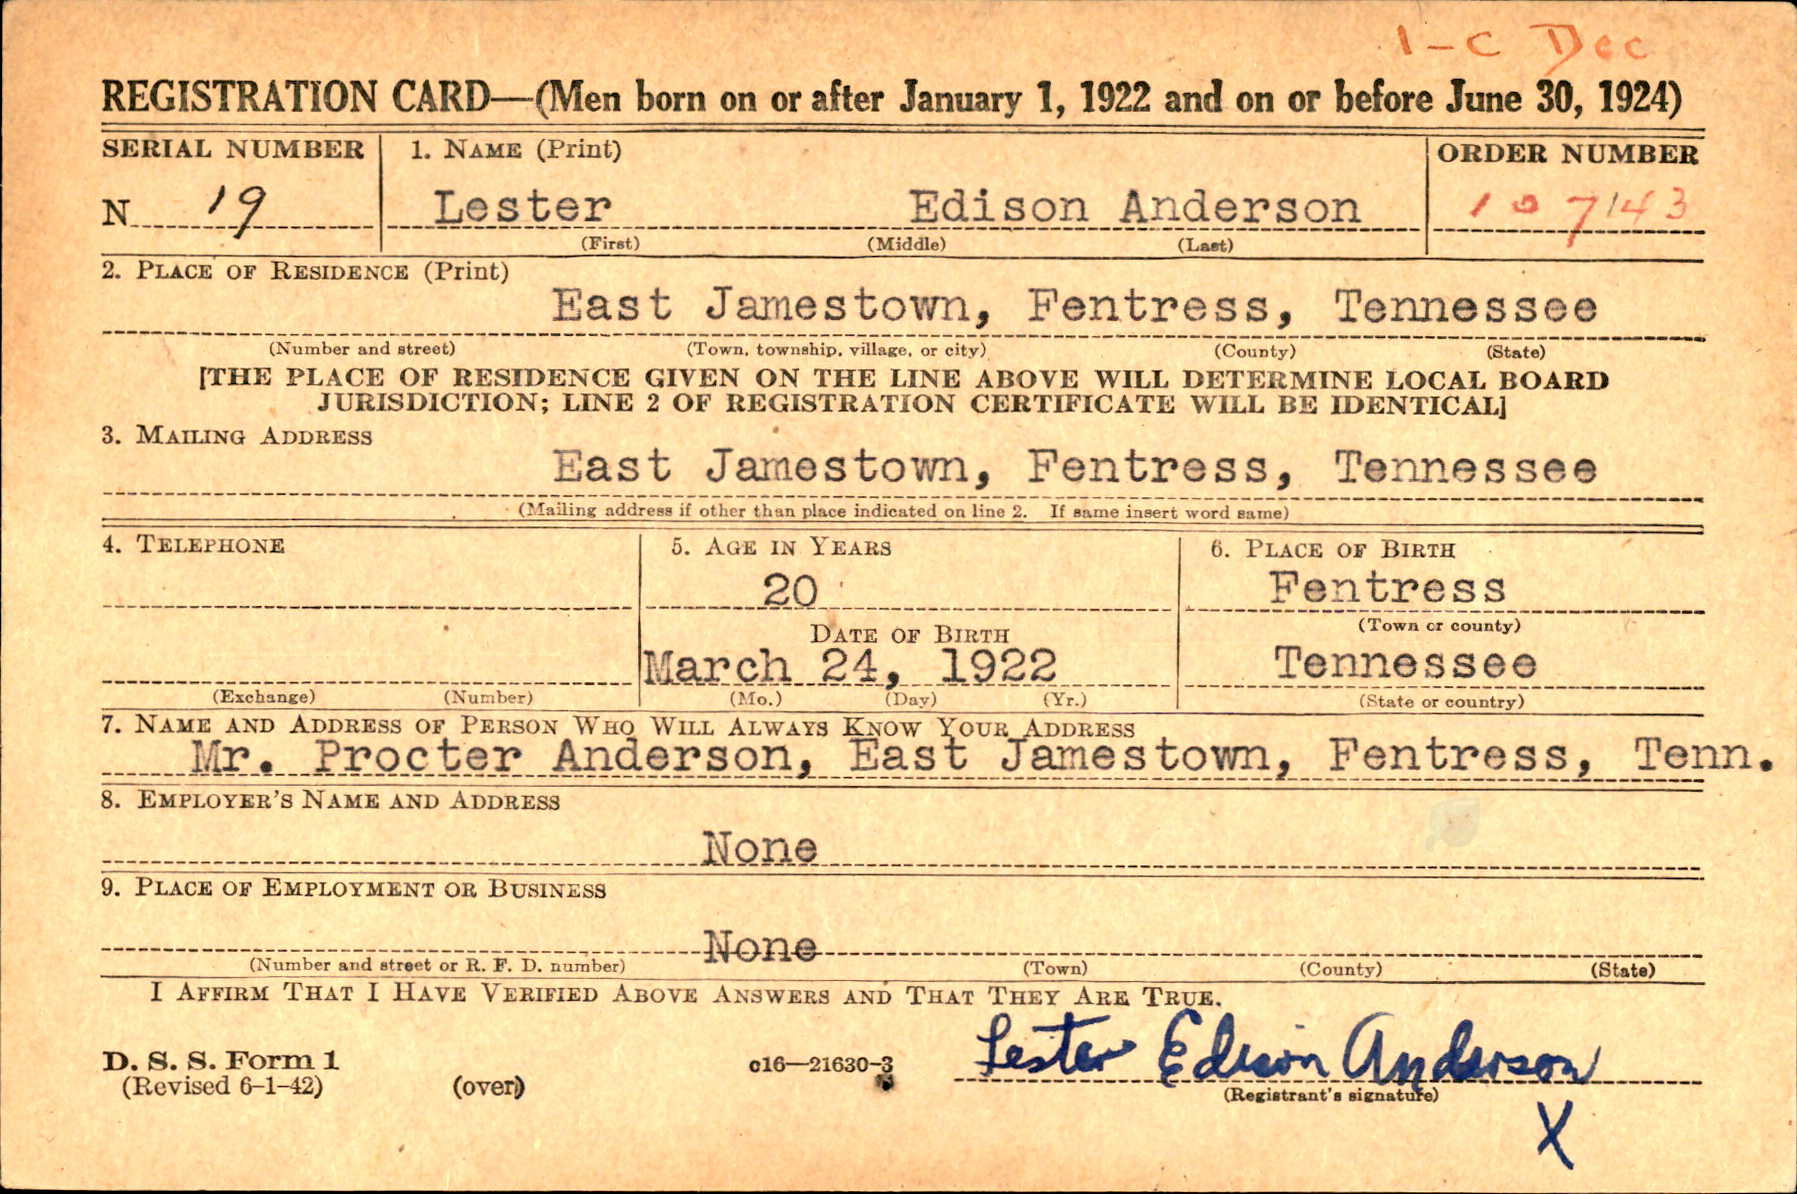 1-C Dec
REGISTRATION CARD—(Men born on or after January 1, 1922 and on or before June 30, 1924)
SERIAL NUMBER 1. NAME (Print) ORDER NUMBER
N 19 Lester Edison Anderson 107143
(First) (Middle) (Last)
2. PLACE OF RESIDENCE (Print)
East Jamestown, Fentress, Tennessee
(Number and street) (Town, township, village, or city) (County) (State)
[THE PLACE OF RESIDENCE GIVEN ON THE LINE ABOVE WILL DETERMINE LOCAL BOARD
JURISDICTION; LINE 2 OF REGISTRATION CERTIFICATE WILL BE IDENTICAL]
3. MAILING ADDRESS
East Jamestown, Fentress, Tennessee
(Mailing address if other than place indicated on line 2. If same insert word same)
4. TELEPHONE 5. AGE IN YEARS 6. PLACE OF BIRTH
20 Fentress
(Town or county)
DATE OF BIRTH
March 24, 1922 Tennessee
(Exchange) (Number) (Mo.) (Day) (Yr.) (State or country)
7. NAME AND ADDRESS OF PERSON WHO WILL ALWAYS KNOW YOUR ADDRESS
Mr. Procter Anderson, East Jamestown, Fentress, Tenn.
8. EMPLOYER'S NAME AND ADDRESS
None
9. PLACE OF EMPLOYMENT OR BUSINESS
None
(Number and street or R. F. D. number) (Town) (County) (State)
I AFFIRM THAT I HAVE VERIFIED ABOVE ANSWERS AND THAT THEY ARE TRUE.
Lester Edison Anderson
D. S. S. Form 1 c16—21630-3
(Revised 6-1-42) (over) (Registrant's signature)
X